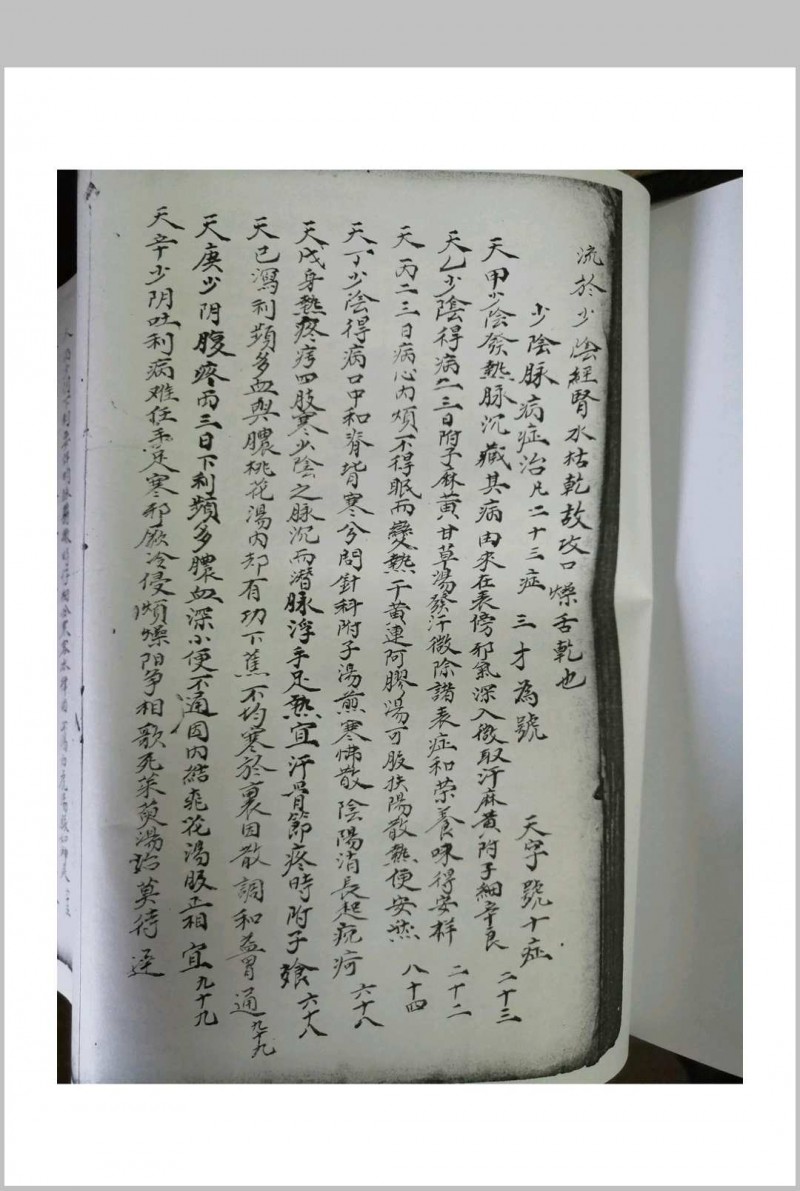 流於少陰經腎水枯乾故攻口燥舌乾也
少陰脉病症治凡二十三症 三才為號 天字號十症
天甲少陰發熱脉沉藏其病由來在表傍邪氣深入微取汗麻黄附子細辛良 二十三
天乙少陰得病二三日附子麻黄甘草湯發汗微除諧表症和荣養味得安样 二十二
天丙二三日病心內煩不得眠而變熱干黄連阿膠湯可服扶陽散熱便安然 八十四
天丁少陰得病口中和脊背寒兮問針科附子湯煎寒怫散陰陽消長起疴 六十八
天戊身熱疼疞四肢寒少陰之脉沉而潛脉浮手足熱宜汗骨節疼時附子飡 六十八
天已瀉利頻多血與膿桃花湯內却有功下蕉不均寒於裏因散調和益胃通 九十九
天庚少阴腹疼两三日下利頻多膿血深小便不通因內結桃花湯服正相宜 九十九
天辛少阴吐利病难任手足寒邪厥冷侵煩燥阳争相歌死茱萸湯治莫待遅